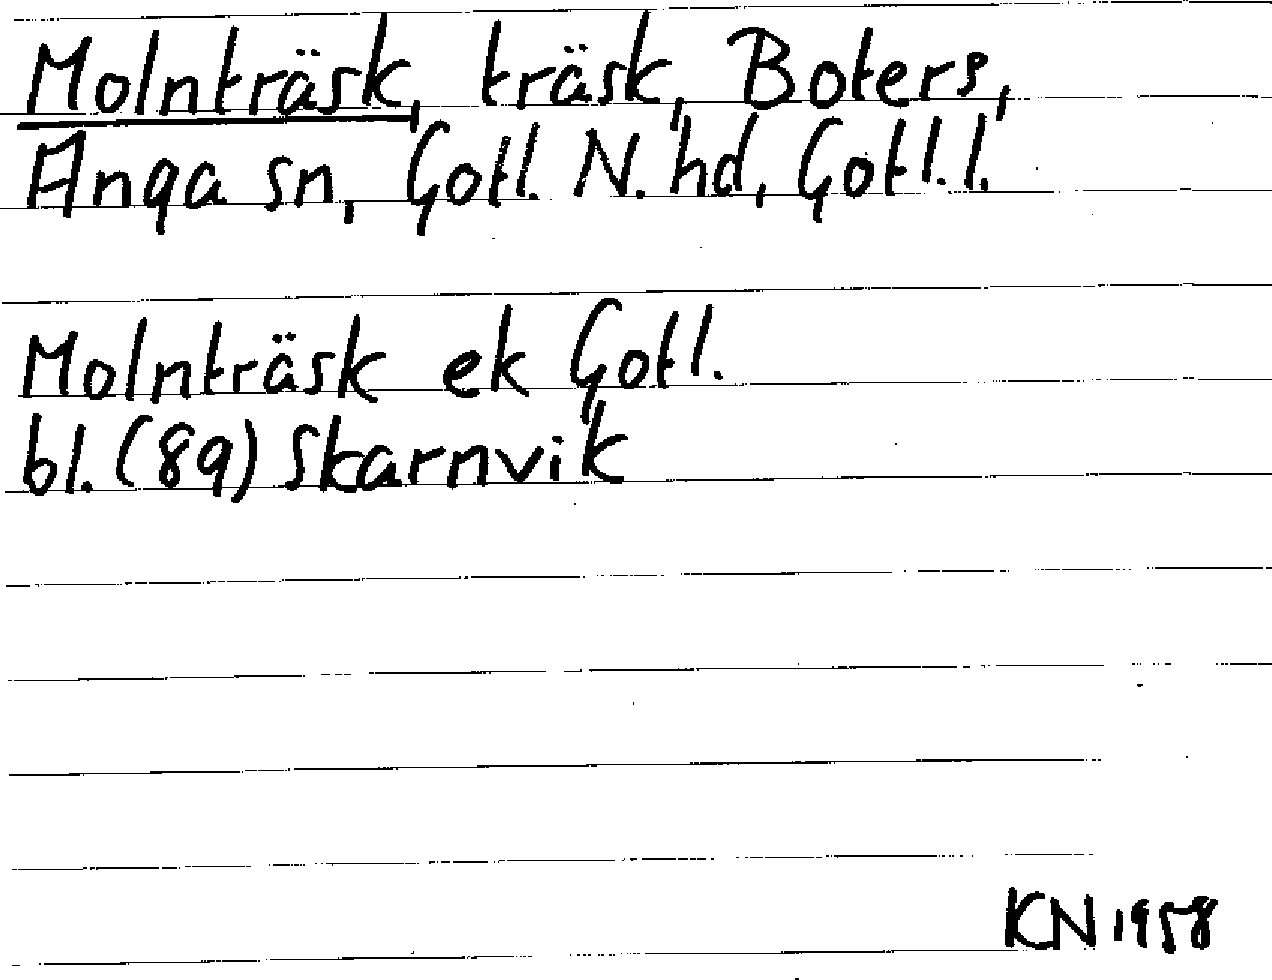 Molnträsk, träsk, Boters,
Anga sn, Gotl. N. hd, Gotl. l.
Molnträsk ek Gotl.
bl. (89) Skarnvik
KN 1958